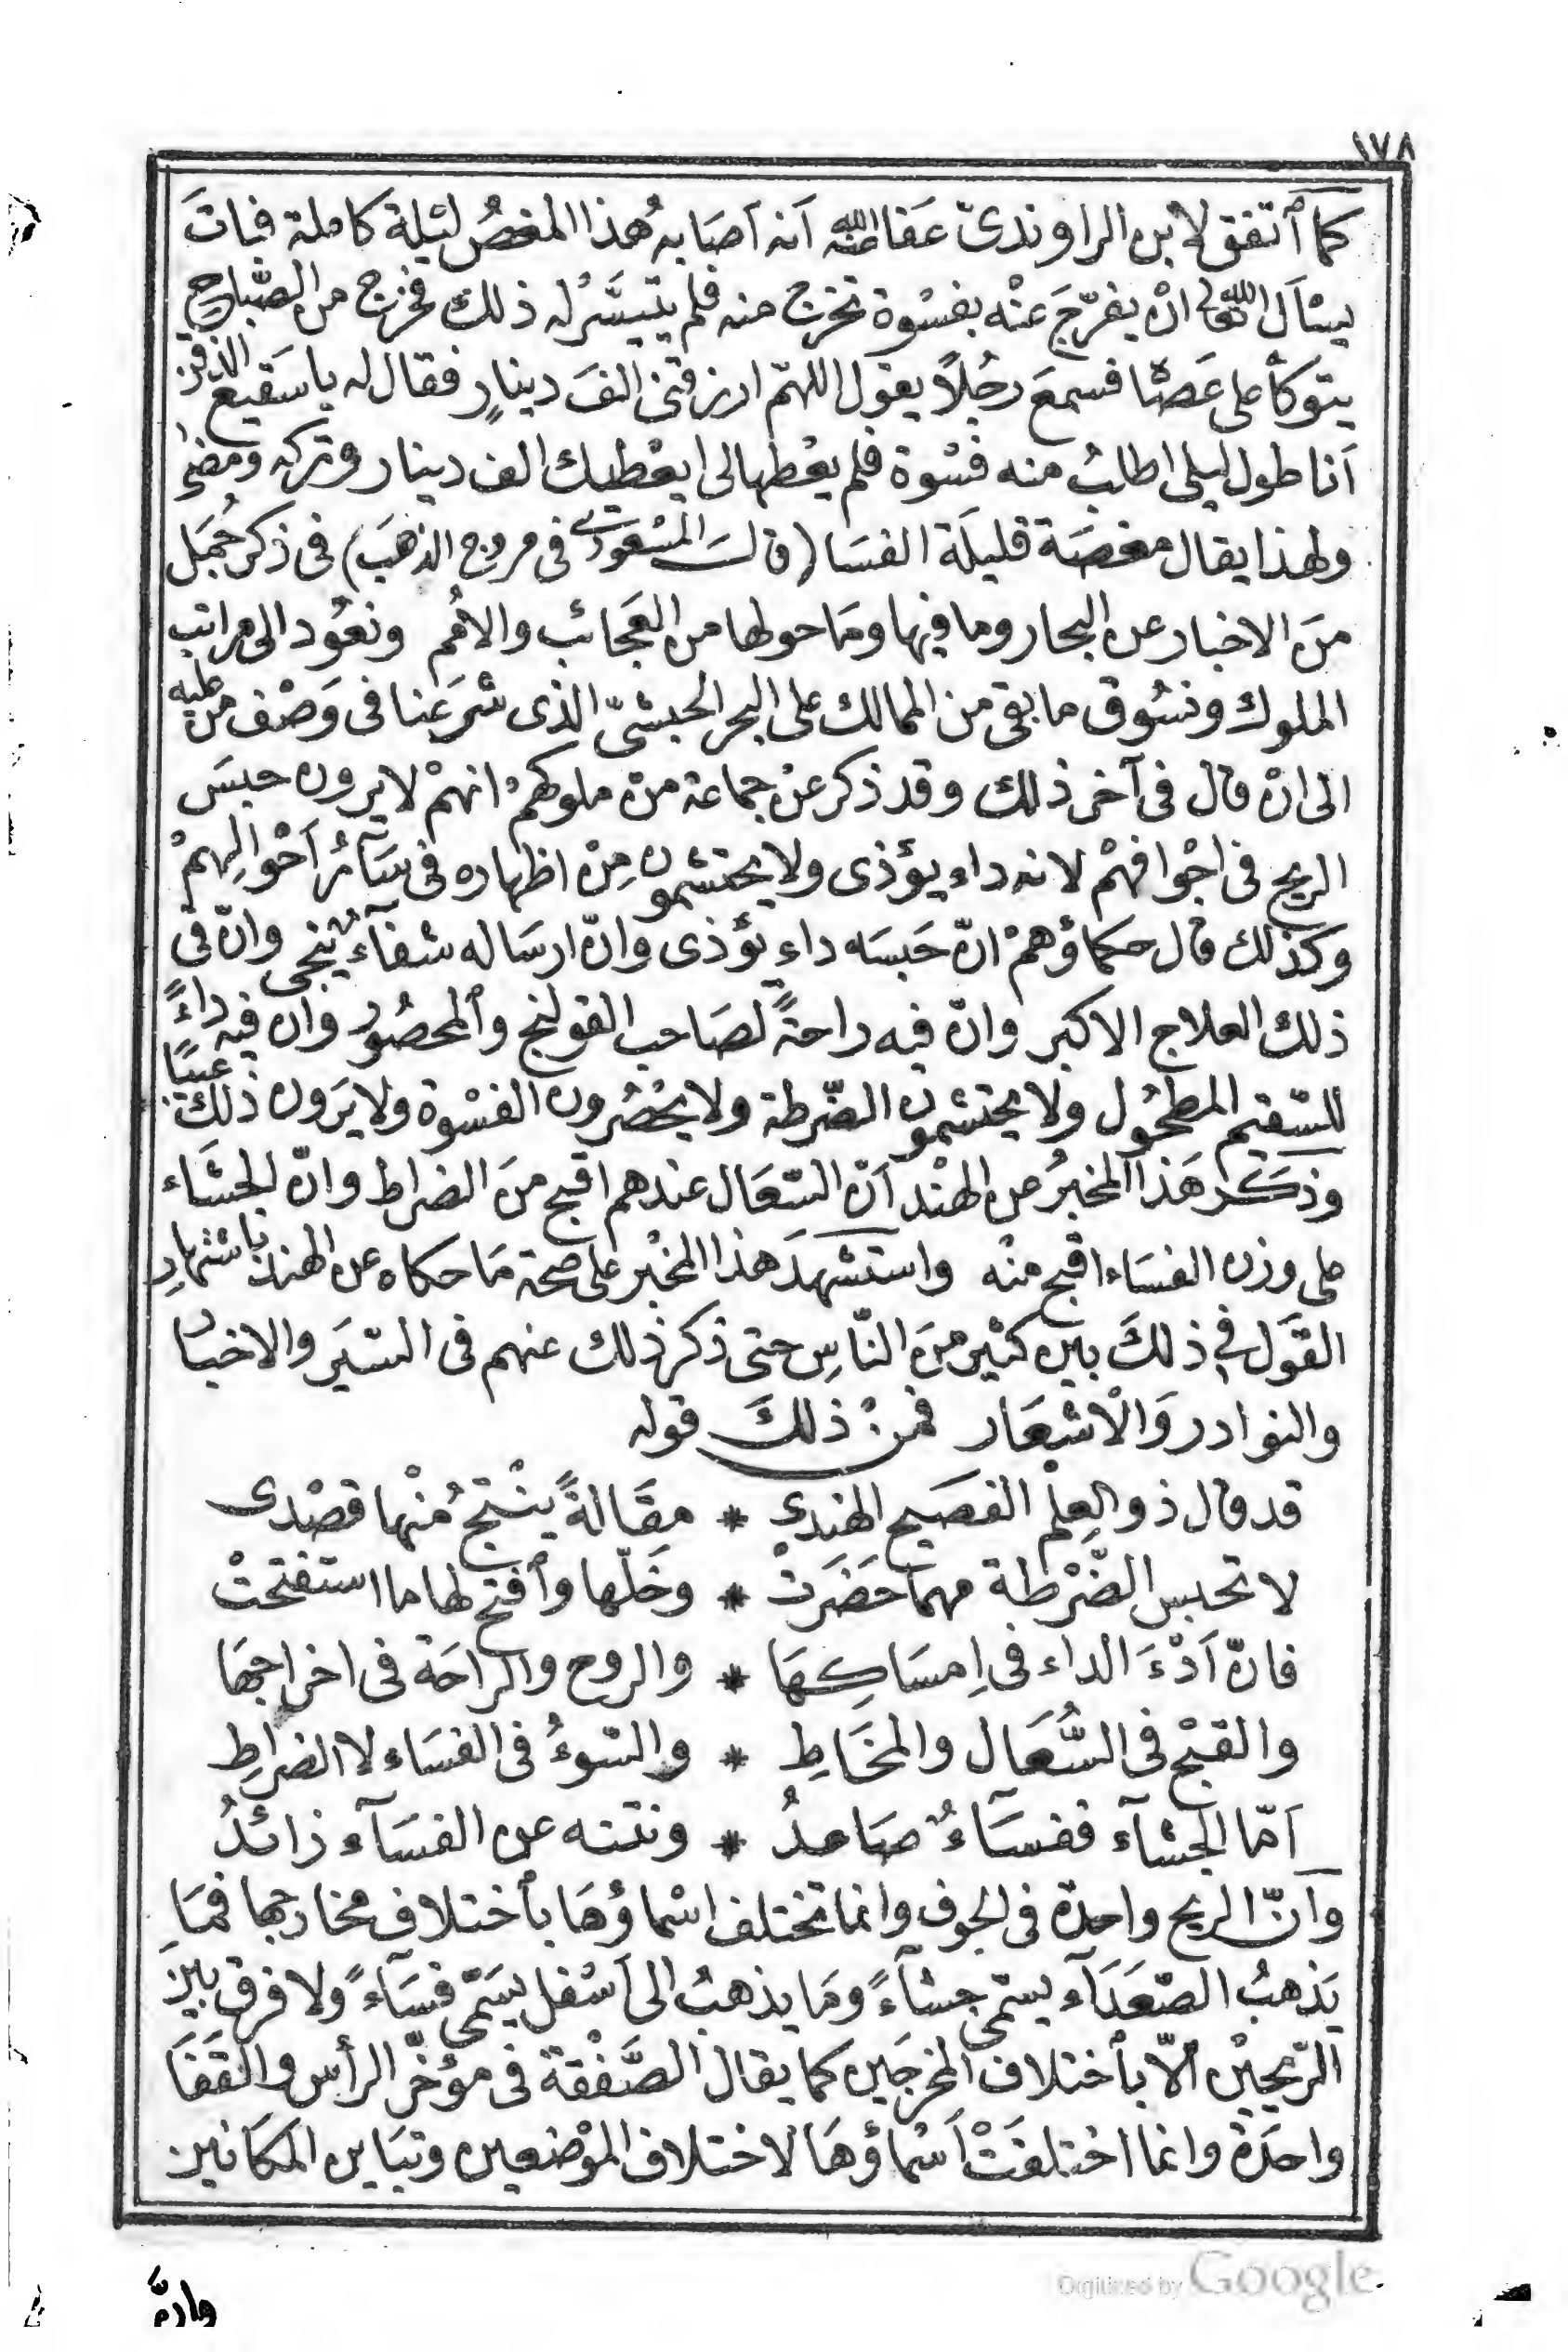 ١٧٨
كما أتفق لابن الراوندىّ عَفَا الله عنه اَنه اَصَابهُ هٰذا المغصُ ليْلة كاملة فباتَ
يسْاَل الله تعالى انْ يفرّجَ عنْه بفسْوة تخرج منه فلم يتيَسَّرْ له ذلك فخرج من الصّباح
يتوكأ على عَصًا فسمعَ رجُلاً يقول اللهمّ ارزقنى الفَ دينارٍ فقال له ياسَقيع الذقن
اَنا طول ليلى اطلبُ منه فسْوة فلم يعْطها لى ايعْطيك الف دينار وتركه ومضىٰ
ولهذا يقال مغصَة قليلَة الفسَا (قالـــ المسْعُودىّ فى مروج الذهَب) فى ذكر جُمَل
منَ الاخبار عن البحار وما فيها ومَا حولها من العَجائب والامُم ونعُود الى مراتب
الملوك ونسُوق ما بقى من الممالك على البحر الحبشىّ الذى شرَعْنا فى وَصْف من عليه
الى انْ قال فى آخر ذلك وقد ذكر عنْ جماعة منْ ملوكهمْ انهمْ لا يرون حبسَ
الريح فى اجْوافهمْ لانه داء يؤذى ولا يحتشمون مِنْ اظهاره فى سَآئر اَحْوالِهمْ
وكذلك قال حكماؤهمْ انّ حَبسَه داء يؤذى وانّ ارسَاله شفآءٌ ينجى وانّ فى
ذلك العلاج الاكبر وانّ فيه راحةً لصَاحب القولنج وٱلمحصُور وان فيه داءً
للسّقيم المطحُول ولا يحتشمون الضّرطة ولا يحْصُرون الفسْوة ولا يَرَون ذلك عيبًا
وذكَر هَذا المخبرُ عن الهنْد اَنّ السّعَال عندهم اقبح منَ الضراط وانّ الجشَاء
على وزن الفسَاء اقبح منْه واستَشْهدَ هذا المخْبر على صحة مَا حكاه عن الهند باشتهارِ
القَول فى ذلكَ بين كثير منَ النّاسِ حتى ذكر ذلك عنهم فى السّيَر والاخبَار
والنوادر وَالْاشْعَار فمنْ ذلكَ قوله
قد قال ذو العِلْم الفصَيح الهندى * مقَالةً ينْتج مْنْها قصْدى
لا تحبس الضّرْطة مهما حَضَرَتْ * وخَلّها وٱفتح لها ما استفتحْت
فانّ اَدْءَ الداء فى اِمسَاكِهَا * والروح والراحَة فى اخراجهَا
والقبْح فى السُّعَال والمخَاطِ * والسّوءُ فى الفسَاء لا الضراطِ
اَمّا الجشآء ففسَآءٌ صَاعدُ * ونتنه عن الفسَآء زائدُ
وَاَنّ الريح واحدة فى الجوف وانما تختلف اسْماؤهَا بٱختلاف مخارجها فمَا
يَذهبُ الصّعَدَآء يسمّى جشآءً ومَا يذهبُ الى اَسْفل يسَمّى فسَآءً ولا فرق بين
الرّيحيْن الّا بٱختلاف المخرجَين كما يقال الصَّفْقة فى مؤخّر الرأس والقَفَا
واحدَة وانما اختلفَتْ اَسْماؤهَا لاختلاف الموْضعين وتبَاين المكانين
وانّ
Digitized by Google